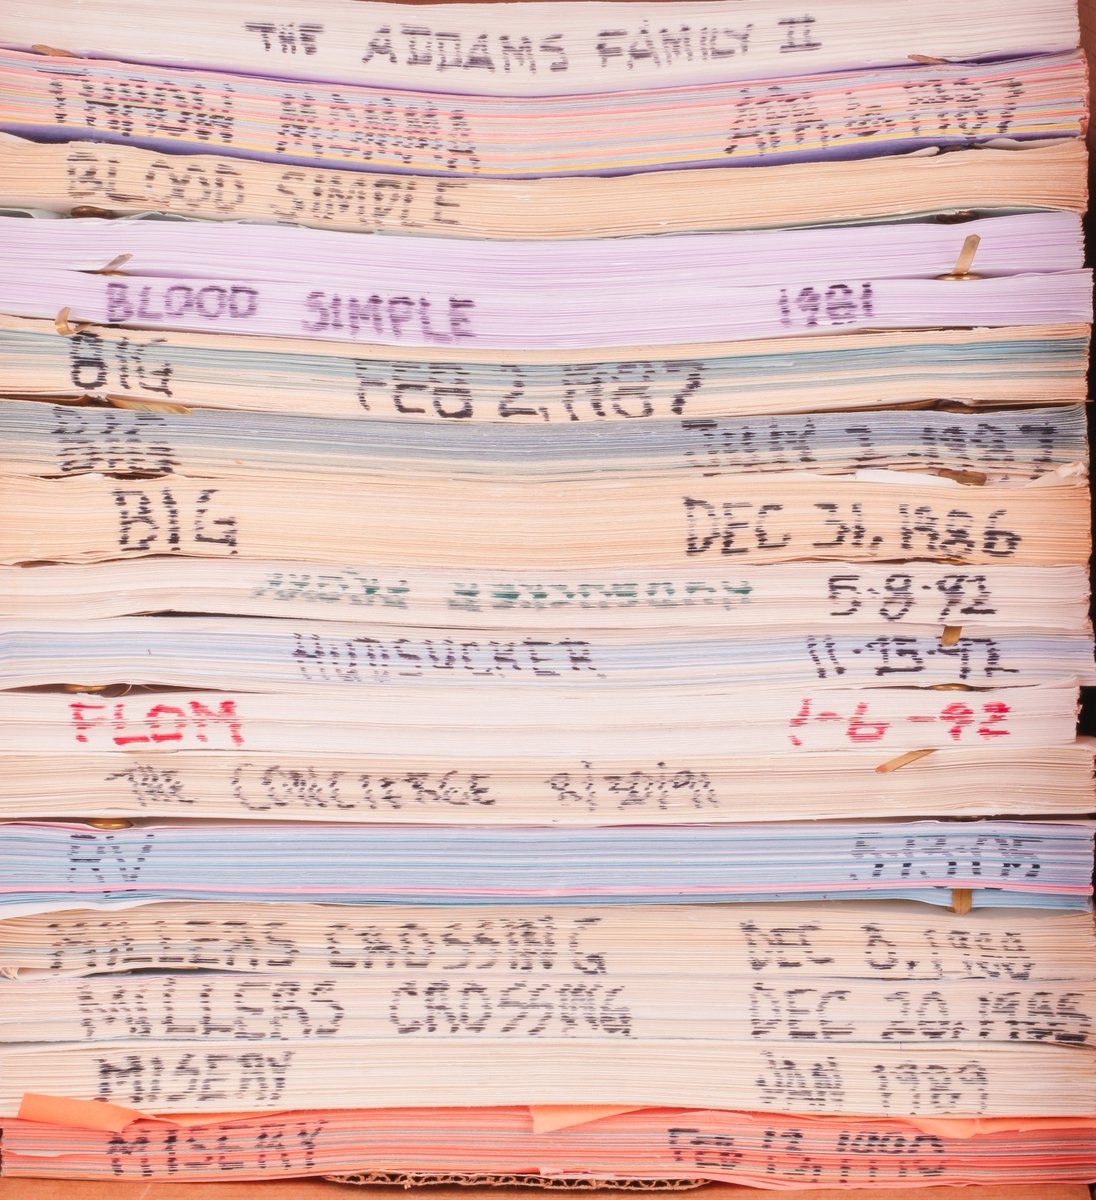 THE ADDAMS FAMILY II
THROW MOMMA APR. 6, 1987
BLOOD SIMPLE
BLOOD SIMPLE 1981
BIG FEB 2, 1987
BIG JUN 1987
BIG DEC 31, 1986
5·8·92
HUDSUCKER 11·15·92
FLOM 1-6-92
THE CONCIERGE
RV
MILLERS CROSSING DEC 8, 1988
MILLERS CROSSING DEC 20, 1988
MISERY JAN 1989
MISERY FEB 13, 1990